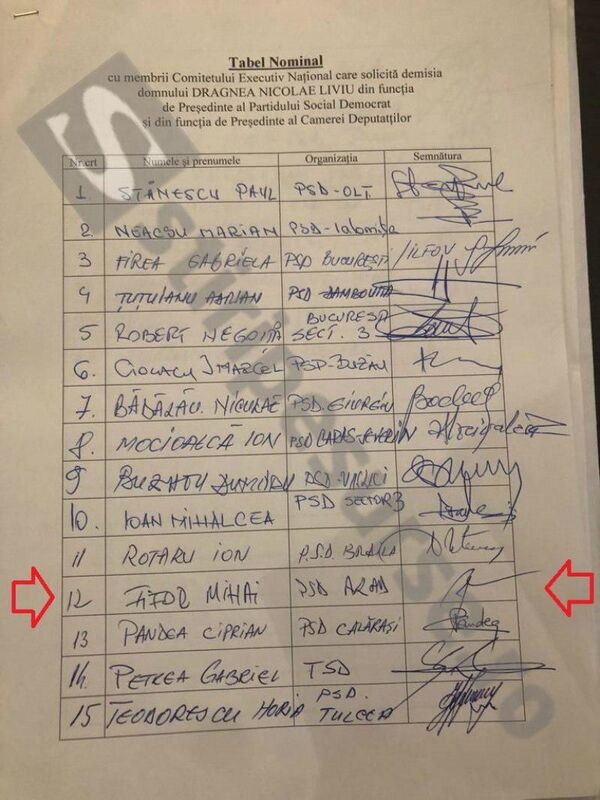 Tabel Nominal
cu membrii Comitetului Executiv Național care solicită demisia
domnului DRAGNEA NICOLAE LIVIU din funcția
de Președinte al Partidului Social Democrat
și din funcția de Președinte al Camerei Deputaților
Nr.crt Numele și prenumele Organizația Semnătura
1 STĂNESCU PAUL PSD-OLT
2 NEACȘU MARIAN PSD-Ialomița
3 FIREA GABRIELA PSD BUCUREȘTI /ILFOV
4 ȚUȚUIANU ADRIAN PSD DAMBOVITA
5 ROBERT NEGOIȚĂ BUCUREȘTI SECT. 3
6. CIOLACU MARCEL PSD-BUZĂU
7. BĂDĂLĂU NICULAE PSD. GIURGIU
8. MOCIOALCĂ ION PSD CARAS-SEVERIN
9 BUZATU DUMITRU PSD-VASLUI
10. IOAN MIHALCEA PSD SECTOR 3
11 ROTARU ION P.S.D. BRAILA
12 FIFOR MIHAI PSD ARAD
13 PANDEA CIPRIAN PSD CĂLĂRAȘI Pandea
14. PETREA GABRIEL TSD
15 TEODORESCU HORIA PSD. TULCEA
stiripesurse.ro